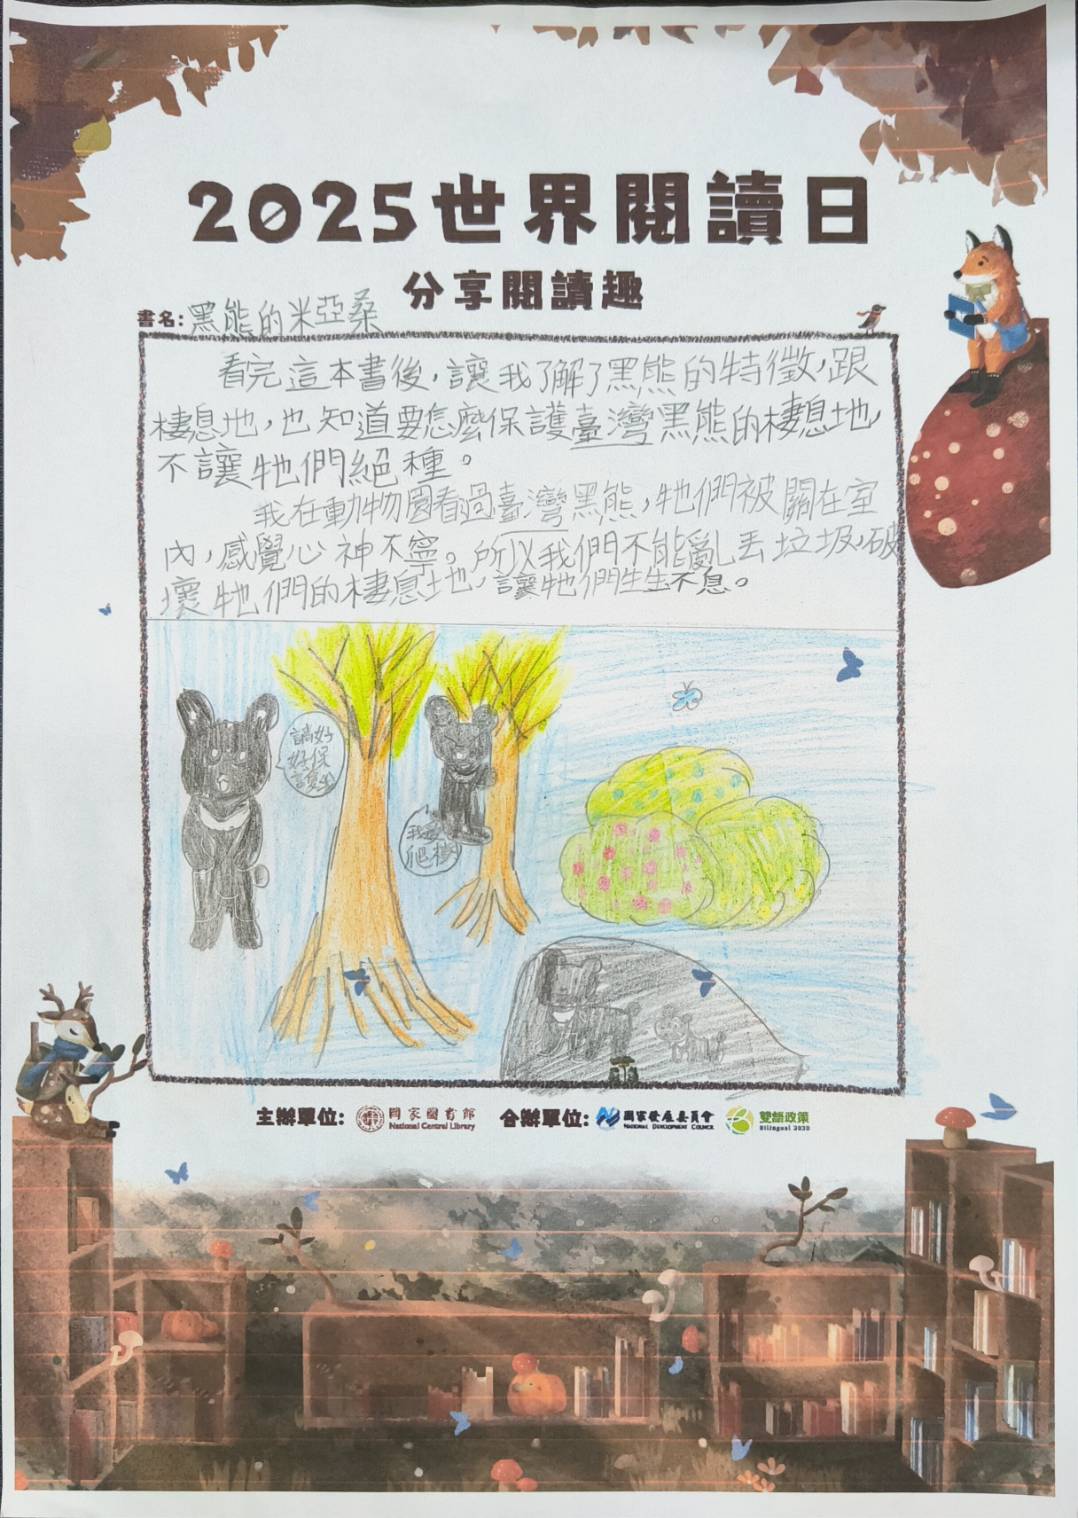 2025世界閱讀日
分享閱讀趣
書名:黑熊的米亞桑
看完這本書後,讓我了解了黑熊的特徵,跟
棲息地,也知道要怎麼保護臺灣黑熊的棲息地,
不讓牠們絕種。
我在動物園看過臺灣黑熊,牠們被關在室
內,感覺心神不寧。所以我們不能亂丟垃圾,破
壞牠們的棲息地,讓牠們生生不息。
請好
好保
護
我
爬樹
主辦單位: 國家圖書館 合辦單位: 國家發展委員會 雙語政策
National Central Library NATIONAL DEVELOPMENT COUNCIL Bilingual 2030